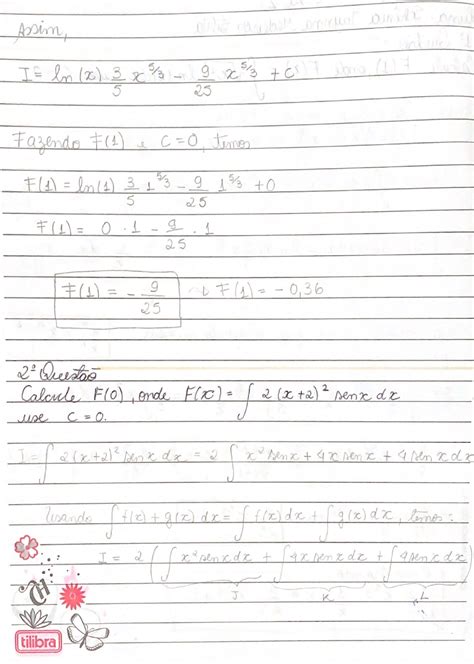 Assim,
I = ln(x) 3/5 x^5/3 - 9/25 x^5/3 + c
Fazendo F(1) e C=0, temos
F(1) = ln(1) 3/5 1^5/3 - 9/25 1^5/3 + 0
F(1) = 0 · 1 - 9/25 · 1
F(1) = - 9/25 F(1) = - 0,36
2ª Questão
Calcule F(0), onde F(x) = ∫ 2(x+2)² senx dx
use C=0.
I = ∫ 2(x+2)² senx dx = 2 ∫ x² senx + 4x senx + 4 senx dx
Usando ∫ f(x) + g(x) dx = ∫ f(x) dx + ∫ g(x) dx, temos:
I = 2 ( ∫ x² senx dx + ∫ 4x senx dx + ∫ 4 senx dx )
J K L
tilibra